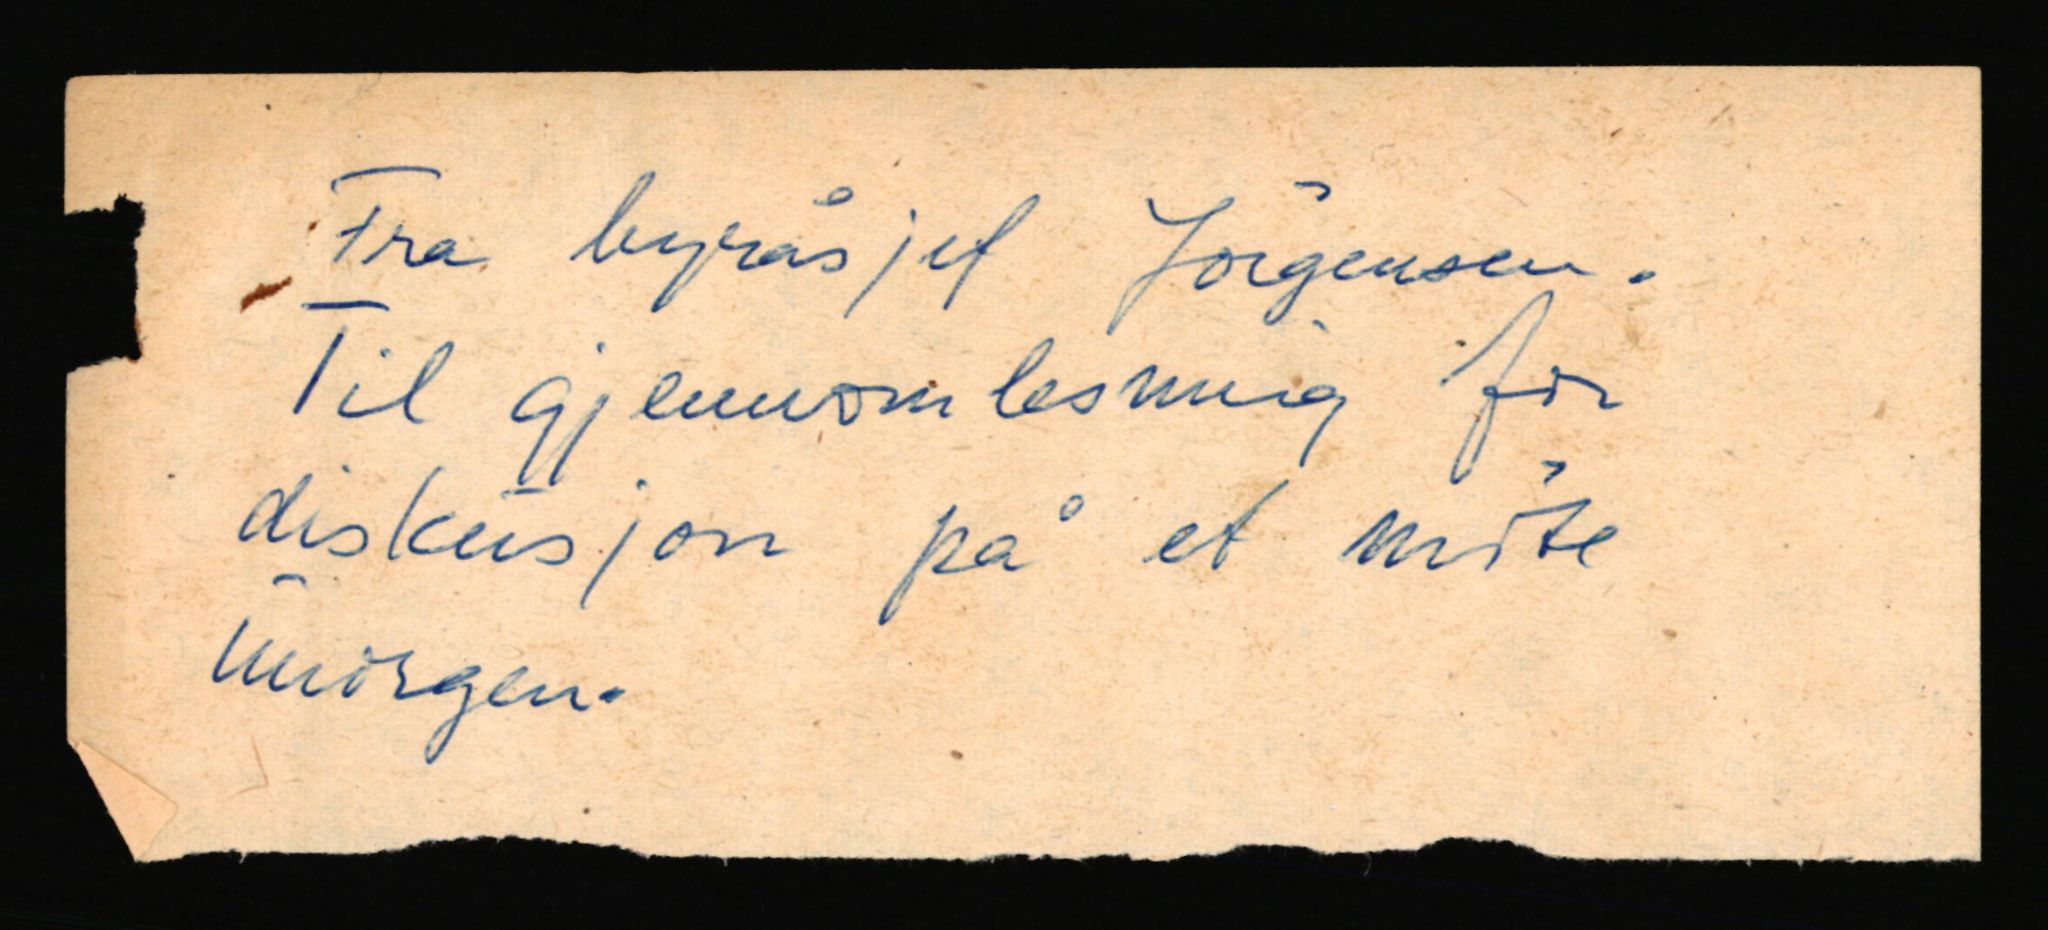 Fra byråsjef Jörgensen.
Til gjennomlesning for
diskusjon på et möte
imorgen.